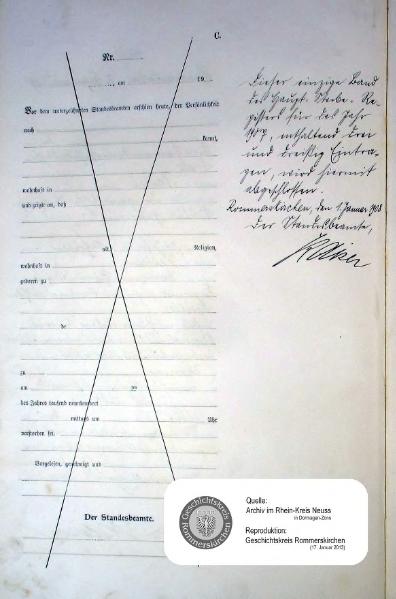 C.
Nr.
am 19
Vor dem unterzeichneten Standesbeamten erschien heute, der Persönlichkeit
nach
kannt,
wohnhaft in
und zeigte an, daß
alt, Religion,
wohnhaft in
geboren zu
de
zu
am ten
des Jahres tausend neunhundert
mittags um Uhr
verstorben sei.
Vorgelesen, genehmigt und
Der Standesbeamte.
Dieser einzige Band
des Haupt-Sterbe-Re-
gisters für das Jahr
1907, enthaltend drei
und dreißig Eintra-
gen, wird hiermit
abgeschlossen.
Rommerskirchen, den 1. Januar 1908
Der Standesbeamte,
Geschichtskreis
Rommerskirchen
Quelle:
Archiv im Rhein-Kreis Neuss
in Dormagen-Zons
Reproduktion:
Geschichtskreis Rommerskirchen
(17. Januar 2012)